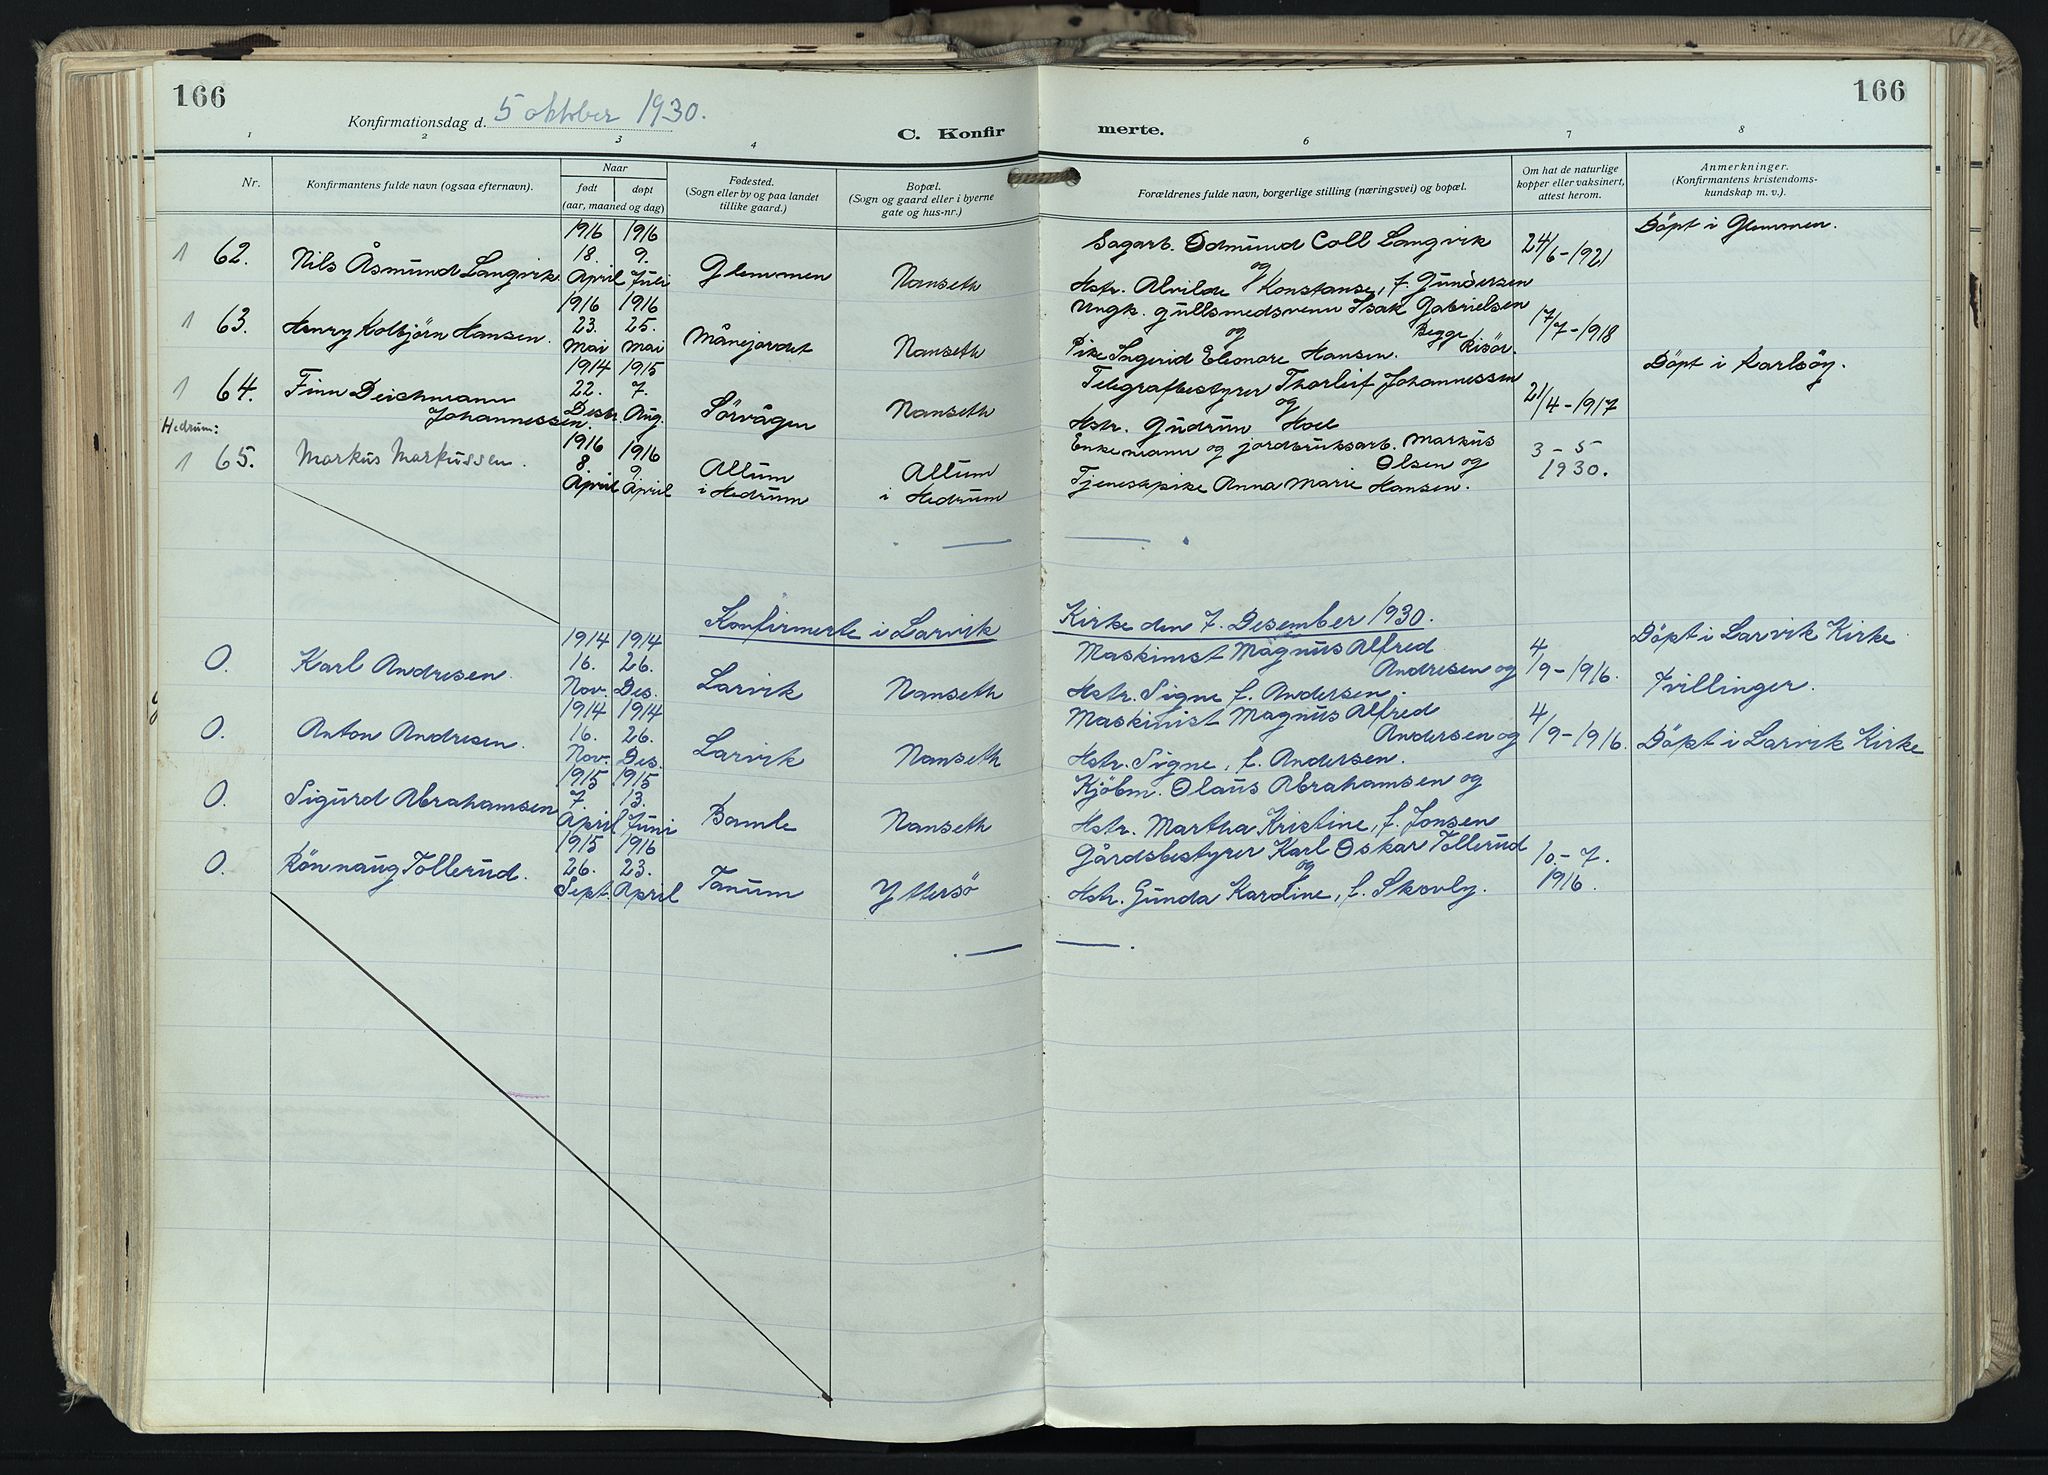 166
Konfirmationsdag d. 5 oktober 1930.
C. Konfirmerte.
166
1 2 3 4 6 7 8
Nr.
Konfirmantens fulde navn (ogsaa efternavn).
Naar
født døpt
(aar, maaned og dag)
Fødested.
(Sogn eller by og paa landet
tillike gaard.)
Bopæl.
(Sogn og gaard eller i byerne
gate og hus-nr.)
Forældrenes fulde navn, borgerlige stilling (næringsvei) og bopæl.
Om hat de naturlige
kopper eller vaksinert,
attest herom.
Anmerkninger.
(Konfirmantens kristendoms-
kundskap m. v.)
1 62. Nils Åsmund Langvik. 1916 18. April 1916 9. Juli Glemmen Nanseth
Sagarb. Odmund Coll Langvik
og
Hstr. Alvilde Konstanse, f. Gundersen
24/6-1921
Döpt i Glemmen.
1 63. Henry Kolbjörn Hansen. 1916 23. Mai 1916 25. Mai Månejordet Nanseth
Ungk. gullsmedsvenn Isak Gabrielsen
og
Pike Ingerid Eleonore Hansen. Begge Risör.
17/7-1918
1 64. Finn Deichmann
Johannessen. 1914 22. Desbr. 1915 7. Aug. Sörvågen Nanseth
Telegrafbestyrer Thorleif Johannessen
og
Hstr. Gudrun Hoel
21/4-1917
Döpt i Karlsöy.
Hedrum:
1 65. Markus Markussen. 1916 8 April 1916 9. April Allum
i Hedrum
Allum
i Hedrum
Enkemann og jordbruksarb. Markus
Olsen og
Tjenestpike Anna Marie Hansen.
3-5
1930.
Konfirmerte i Larvik Kirke den 7. Desember 1930.
O. Karl Andresen. 1914 16. Nov. 1914 26. Des. Larvik Nanseth
Maskinist Magnus Alfred
Andresen og
Hstr. Signe f. Andersen.
4/9-1916.
Döpt i Larvik Kirke
Tvillinger.
O. Anton Andresen. 1914 16. Nov. 1914 26. Des. Larvik Nanseth
Maskinist Magnus Alfred
Andersen og
Hstr. Signe, f. Andersen.
4/9-1916.
Döpt i Larvik Kirke
O. Sigurd Abrahamsen 1915 7. April 1915 13. Juni Bamle Nanseth
Kjöbm. Olaus Abrahamsen og
Hstr. Martha Kristine, f. Jonsen
O. Rönnaug Tollerud. 1915 26. Sept. 1916 23. April Tanum Yttersö
Gårdsbestyrer Karl Oskar Tollerud
og
Hstr. Gunda Kardine, f. Skovly.
10.-7.
1916.